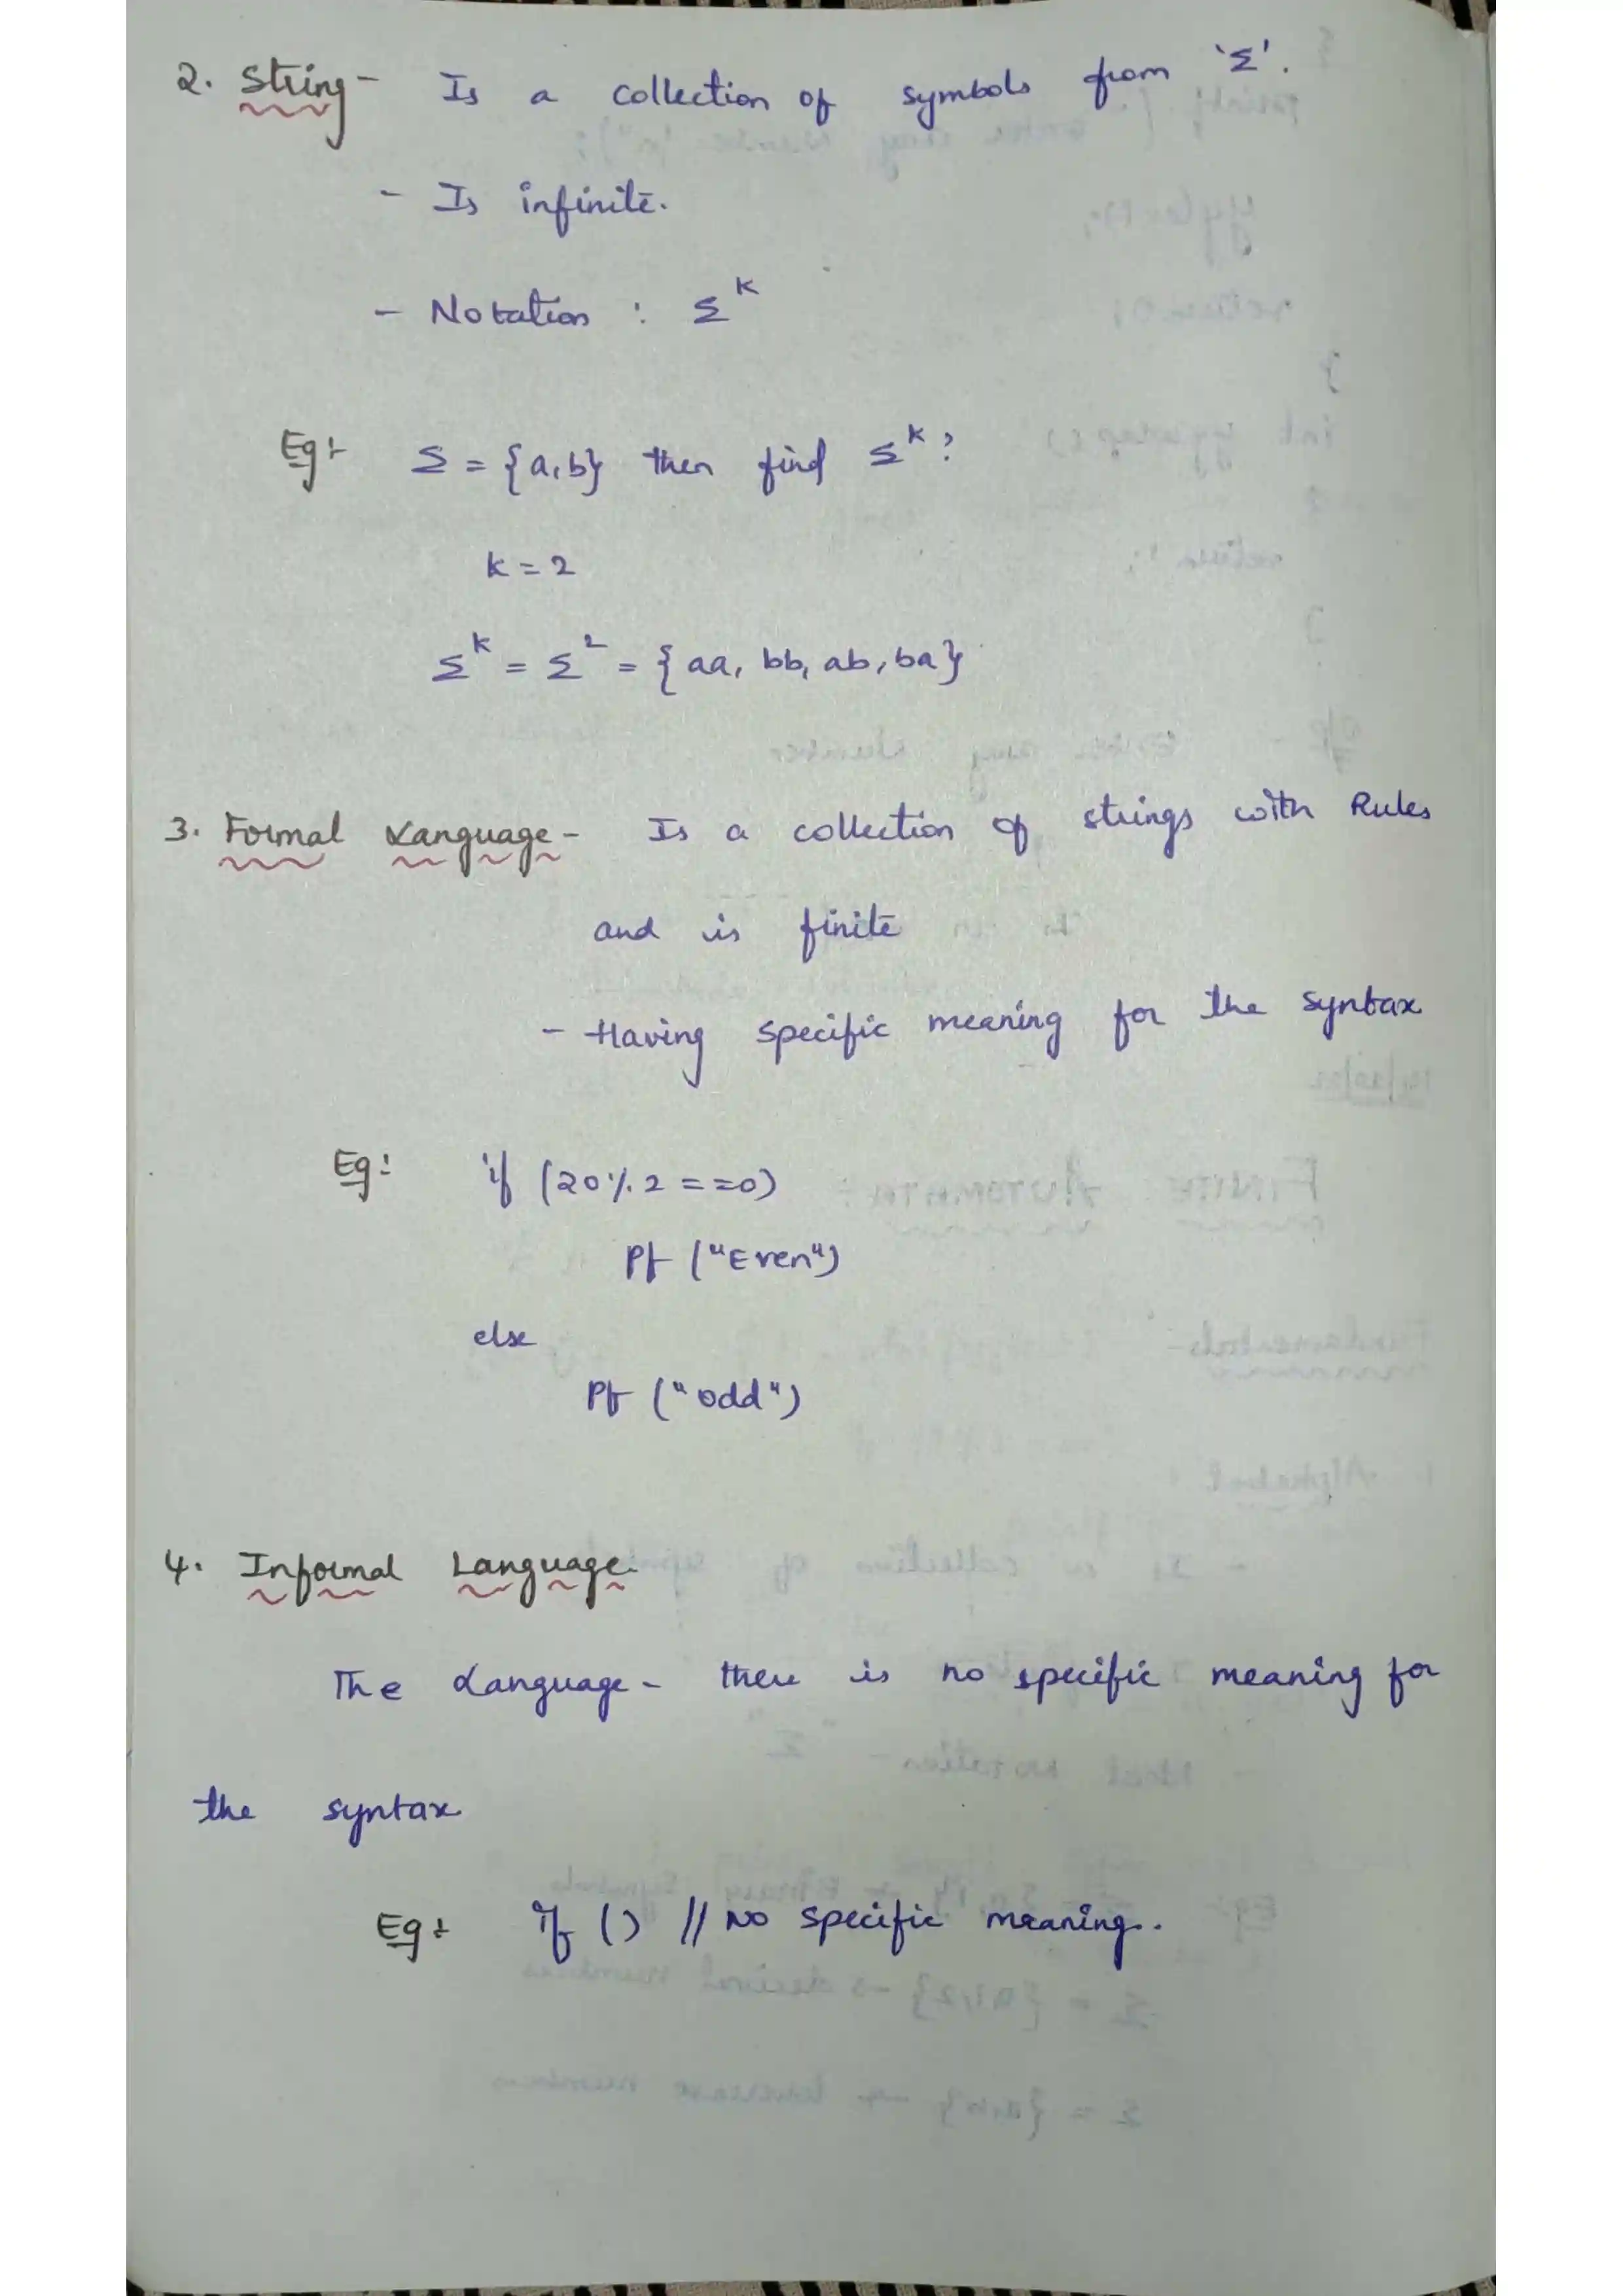 2. String - Is a collection of symbols from 'Σ'.
- Is infinite.
- Notation : Σ^k
Eg:- Σ = {a,b} then find Σ^k?
k = 2
Σ^k = Σ^2 = {aa, bb, ab, ba}
3. Formal Language - Is a collection of strings with Rules
and is finite
- Having specific meaning for the syntax
Eg:- if (20%2 == 0)
Pf ("Even")
else
Pf ("odd")
4. Informal Language.
The Language - there is no specific meaning for
the syntax
Eg:- if () // No specific meaning.